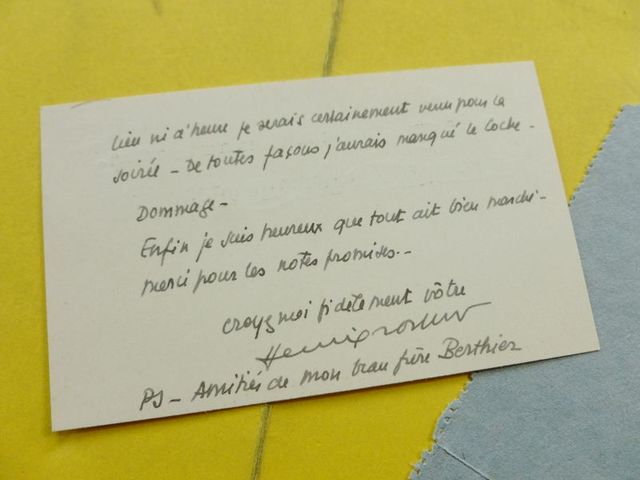 lieu ni d'heure je serais certainement venu pour la
soirée - De toutes façons j'aurais manqué le coche -
Dommage -
Enfin je suis heureux que tout ait bien marché -
merci pour les notes promises. -
croyez moi fidèlement vôtre
PS - Amitiés de mon beau frère Berthier